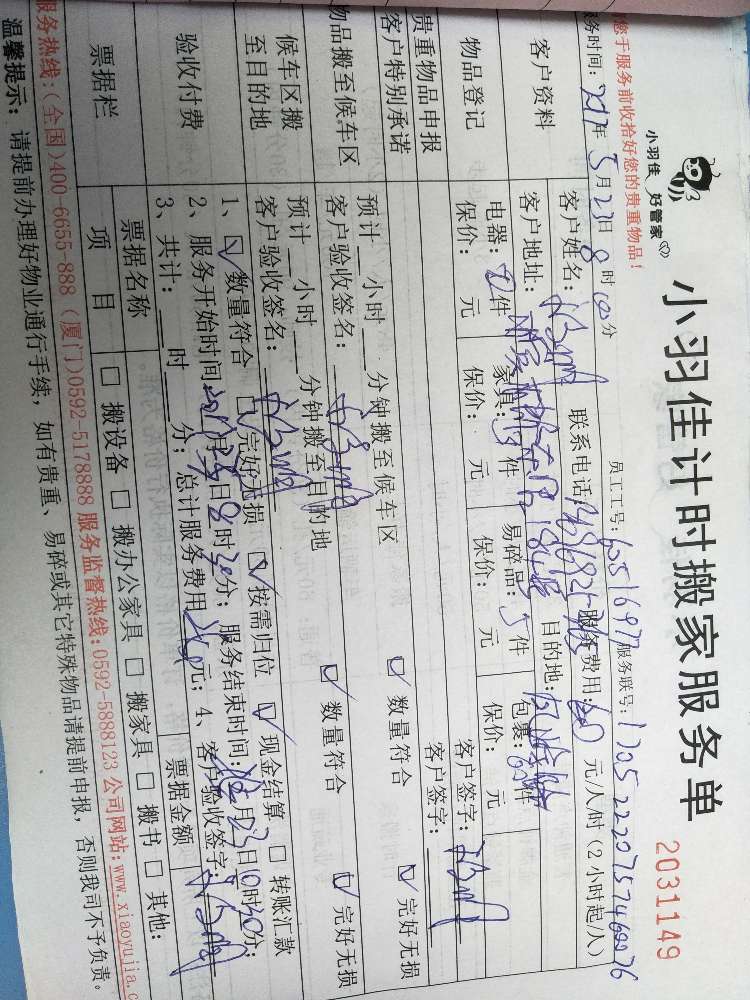 小羽佳计时搬家服务单
2031149
小羽佳 好管家
您于服务前收拾好您的贵重物品!
员工工号: 60516977 服务联号: 17052220757460076
务时间: 2017年5月23日8时10分
客户资料
客户姓名: 联系电话: 服务费用: 60 元/人/时(2小时起/人)
客户地址: 目的地:
物品登记
电器: 件 家具: 5件 易碎品: 5件 包裹: 件
保价: 元 保价: 元 保价: 元 保价: 元
贵重物品申报 客户签字:
客户特别承诺 客户签字:
物品搬至候车区
预计__小时__分钟搬至候车区 ☑ 数量符合 ☑ 完好无损
客户验收签名:
候车区搬至目的地
预计__小时__分钟搬至目的地 ☑ 数量符合 ☑ 完好无损
客户验收签名:
验收付费
1、☑ 数量符合 ☑ 完好无损 ☑ 按需归位 ☑ 现金结算 □ 转账汇款
2、服务开始时间: 月23日8时30分; 服务结束时间: 月23日10时30分;
3、共计:__时__分; 总计服务费用240元; 4、客户验收签字:
票据栏
票据名称 票据金额
项目 □ 搬设备 □ 搬办公家具 □ 搬家具 □ 搬书 □ 其他:
服务热线:(全国)400-6655-888 (厦门)0592-5178888 服务监督热线:0592-5888123 公司网站:www.xiaoyujia.c
温馨提示: 请提前办理好物业通行手续, 如有贵重、易碎或其它特殊物品请提前申报, 否则我司不予负责。